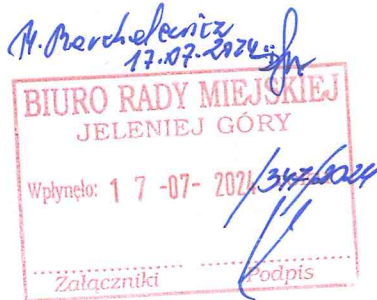 17.07.2024
BIURO RADY MIEJSKIEJ
JELENIEJ GÓRY
Wpłynęło: 17 -07- 2024 /347/2024
Załączniki Podpis